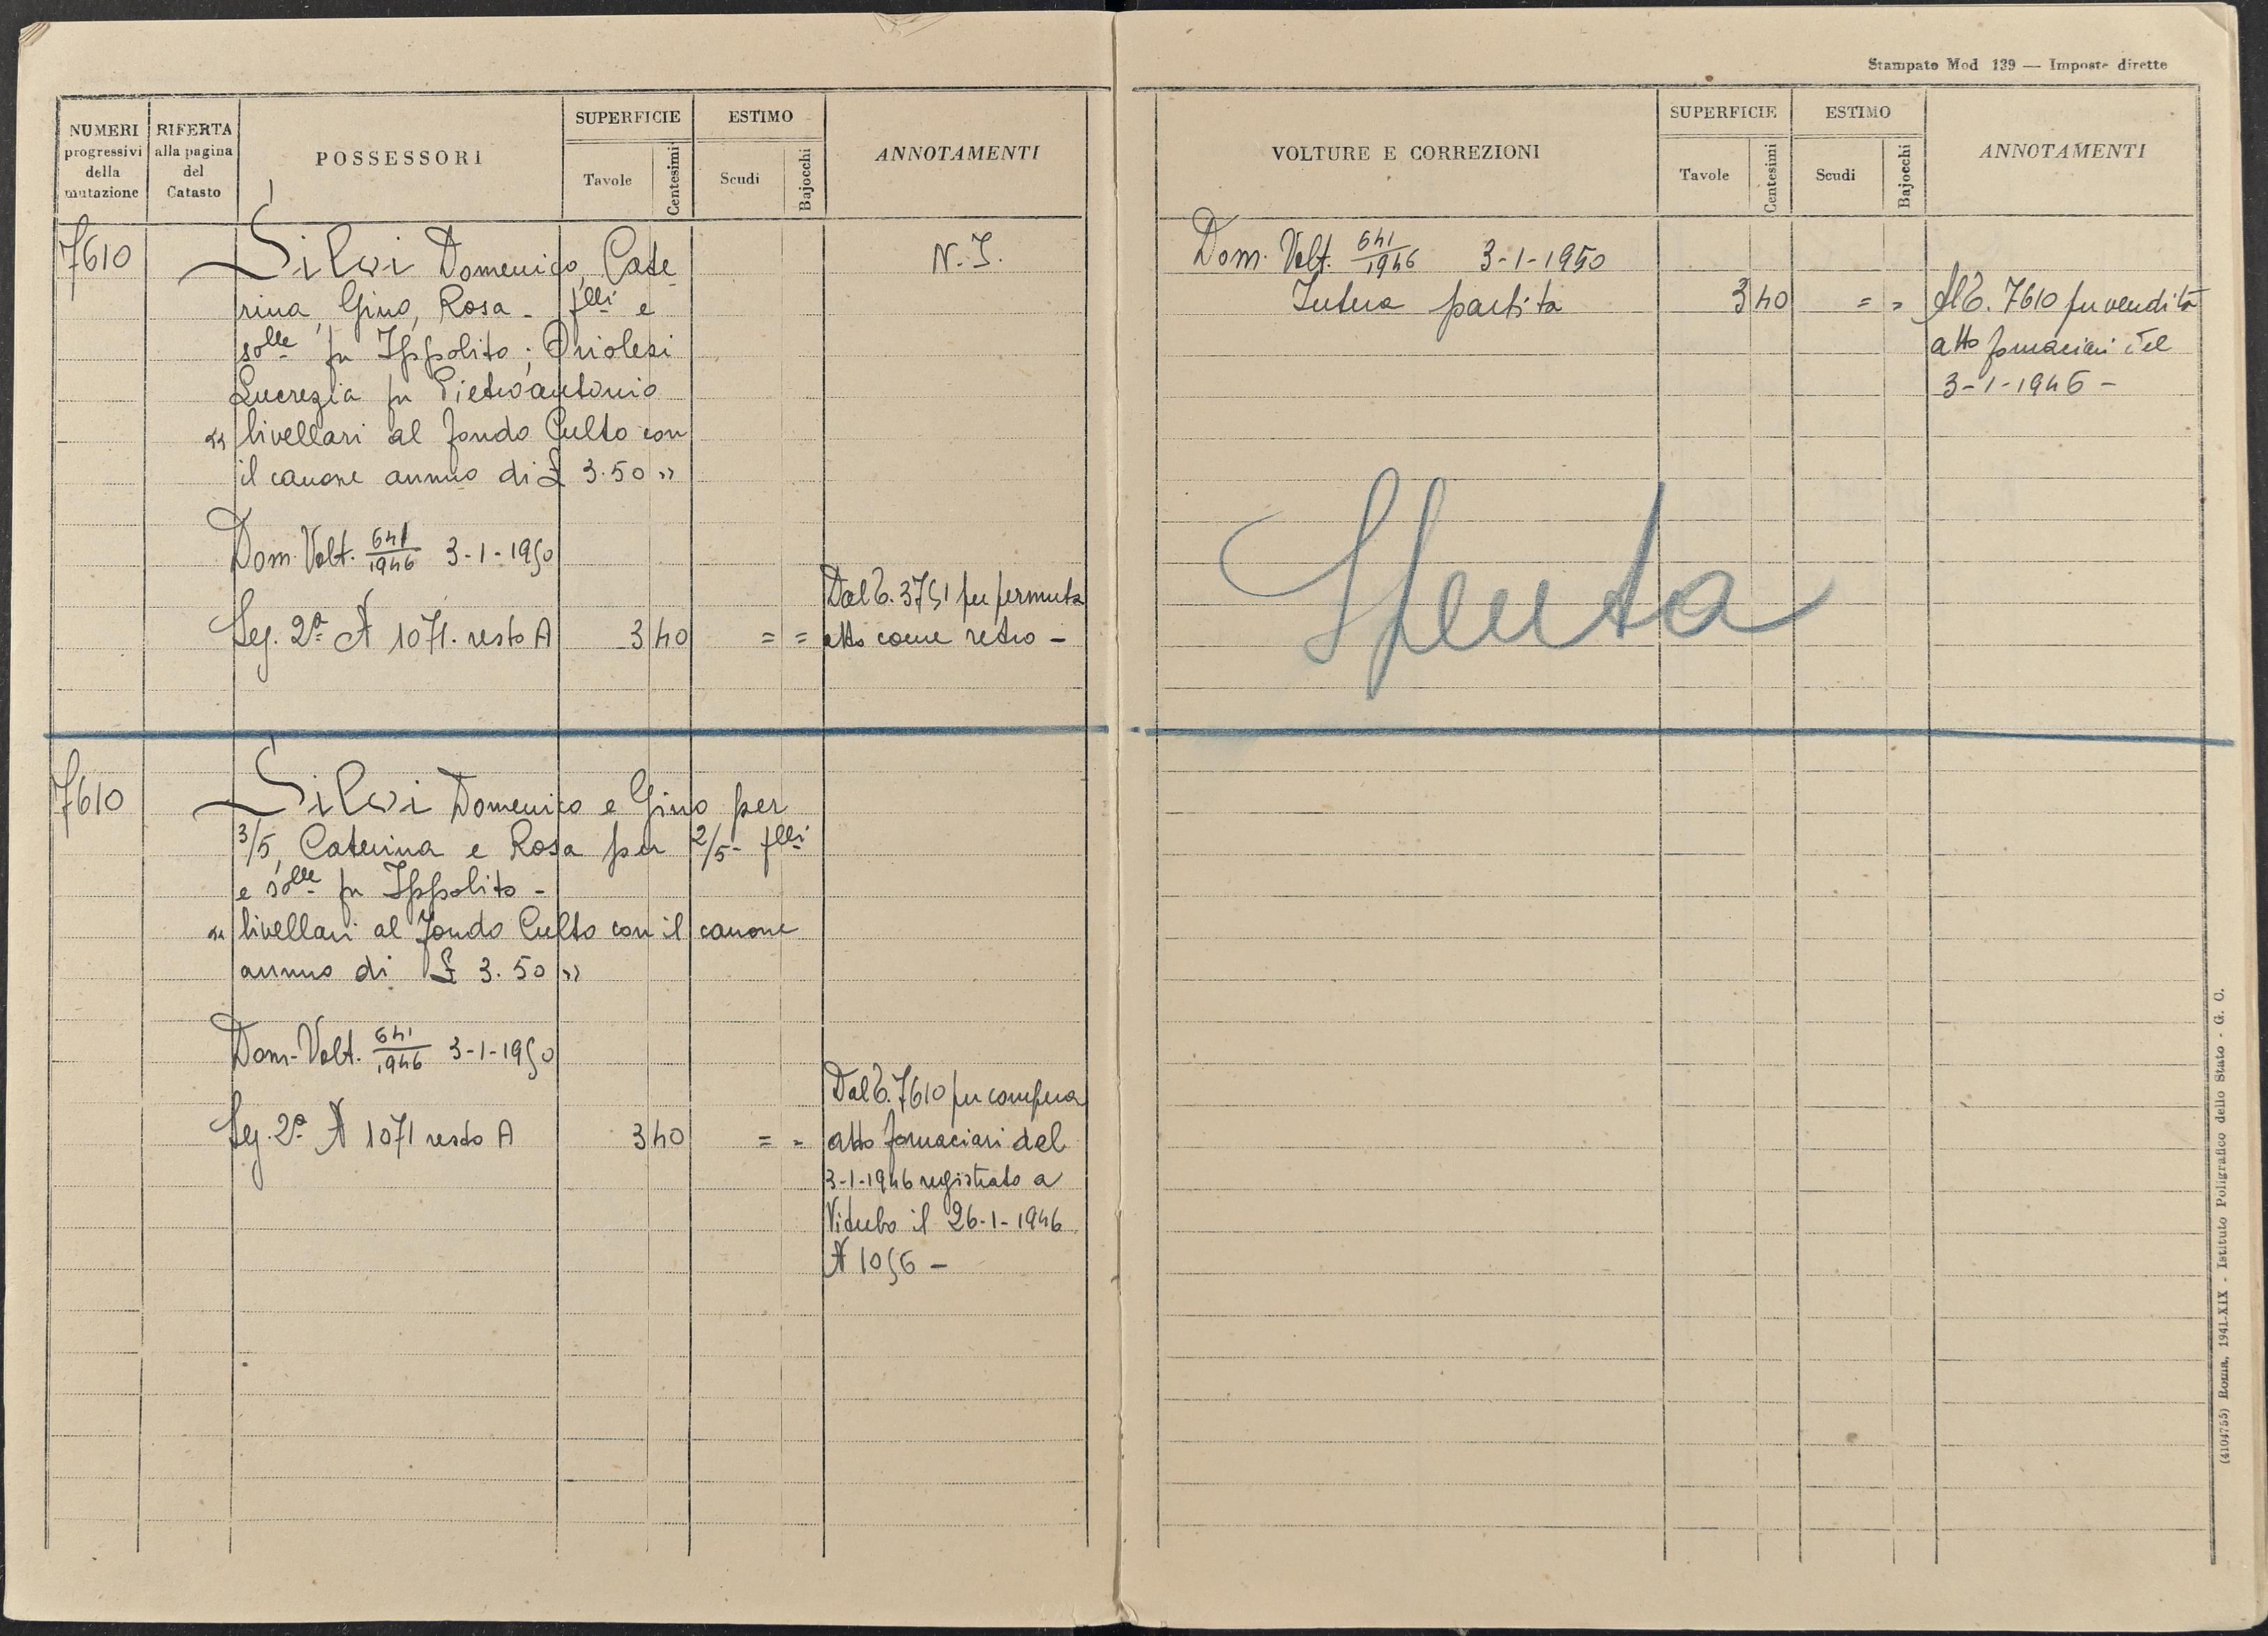 Stampato Mod 139 — Imposte dirette
NUMERI progressivi della mutazione
RIFERTA alla pagina del Catasto
POSSESSORI
SUPERFICIE
Tavole
Centesimi
ESTIMO
Scudi
Bajocchi
ANNOTAMENTI
7610
Silvi Domenico, Cate
N. I.
rina, Gino, Rosa - flli e
solle fu Ippolito; Oriolesi
Lucrezia fu Pietroantonio
« livellari al fondo Culto con
il canone annuo di £ 3.50 »
Dom. Volt. 641/1946 3-1-1950
Dal C. 3751 per permuta
Sez. 2ª N 1071. resto A 3 40 = = atto come retro -
7610
Silvi Domenico e Gino per
3/5, Caterina e Rosa per 2/5 - flli
e solle fu Ippolito -
« livellari al fondo Culto con il canone
annuo di £ 3.50 »
Dom. Volt. 641/1946 3-1-1950
Dal C. 7610 per compera
Sez. 2ª N 1071 resto A 3 40 = = atto fornaciari del
3-1-1946 registrato a
Viterbo il 26-1-1946
N 1056 -
VOLTURE E CORREZIONI
SUPERFICIE
Tavole
Centesimi
ESTIMO
Scudi
Bajocchi
ANNOTAMENTI
Dom. Volt. 641/1946 3-1-1950
Intera partita 3 40 = = Al C. 7610 per vendita
atto fornaciari del
3-1-1946 -
Spenta
(4104755) Roma, 1941-XIX - Istituto Poligrafico dello Stato - G. C.